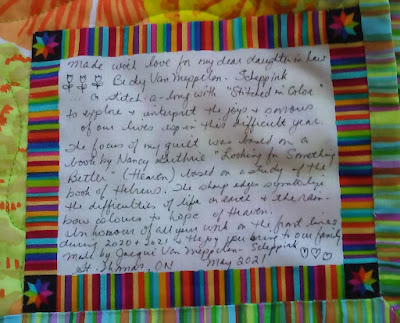 Made with love for my dear daughter in law
Cidy Van Meppelen - Scheppink
... a stitch-a-long with "Stitched in Color"
to explore & interpret the joys & sorrows
of our lives esp in this difficult year.
The focus of my quilt was based on a
book by Nancy Guthrie "Looking for Something
Better" (Heaven) based on a study of the
book of Hebrews. The sharp edges symbolize
the difficulties of life on earth & the rain-
bow colours to hope of Heaven.
In honour of all your work on the front lines
during 2020 & 2021 & the joy you bring to our family
made by Jacqui Van Meppelen - Scheppink
St. Thomas, ON May 2021